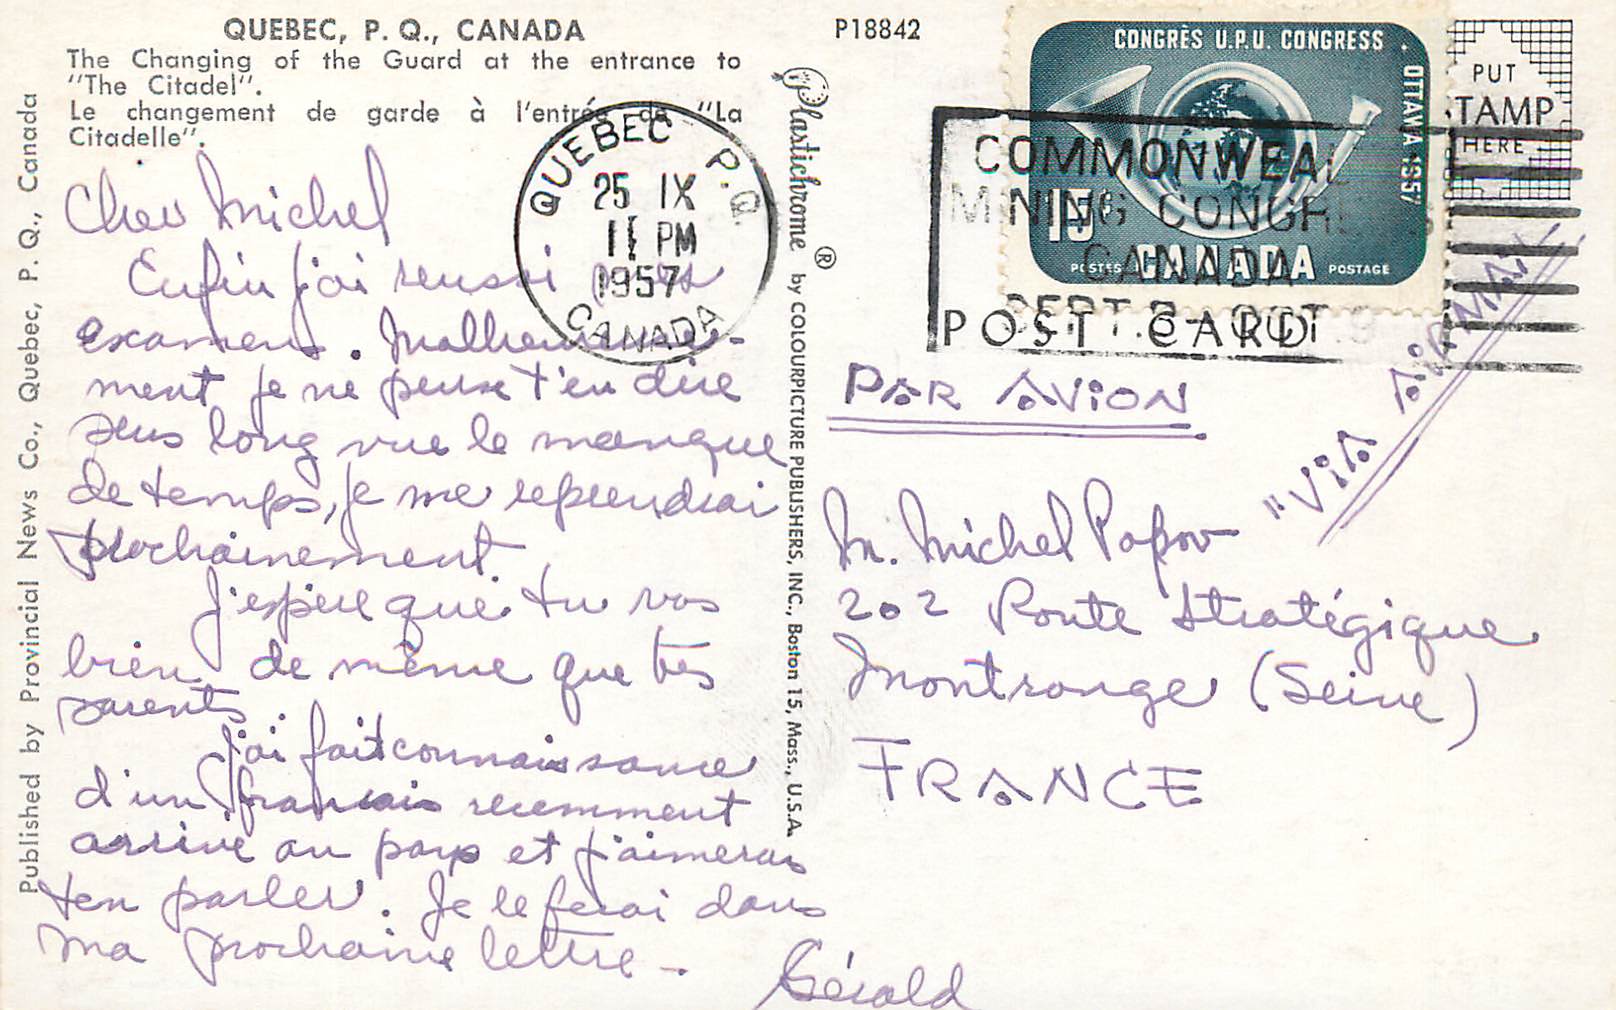 QUEBEC, P. Q., CANADA
The Changing of the Guard at the entrance to
"The Citadel".
Le changement de garde à l'entrée de "La
Citadelle".
Cher Michel
Enfin j'ai reussi mes
examens. Malheureuse-
ment je ne peux t'en dire
plus long vue le manque
de temps, je me reprendrai
prochainement.
J'espère que tu vas
bien de même que tes
parents.
J'ai fait connaissance
d'un francais recemment
arrivé au pays et j'aimerais
t'en parler. Je le ferai dans
ma prochaine lettre -
Gérald
Published by Provincial News Co., Quebec, P. Q., Canada
QUEBEC P.Q.
25 IX
11 PM
1957
CANADA
Plastichrome ® by COLOURPICTURE PUBLISHERS, INC., Boston 15, Mass., U.S.A.
P18842
CONGRÈS U.P.U. CONGRESS
OTTAWA 1957
15¢
POSTES CANADA POSTAGE
PUT
STAMP
HERE
COMMONWEAL
MINING CONGRESS
CANADA
SEPT. 8 - OCT. 9
POST CARD
PAR AVION
"VIA AIRMAIL"
M. Michel Popov
202 Route Stratégique
Montrouge (Seine)
FRANCE